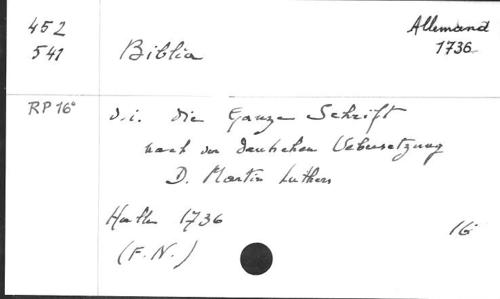 452
541
Allemand
1736
Biblia
RP 16°
d.i. die Ganze Schrift
nach der deutschen Uebersetzung
D. Martin Luthers
Halle 1736
16°
(F.N.)